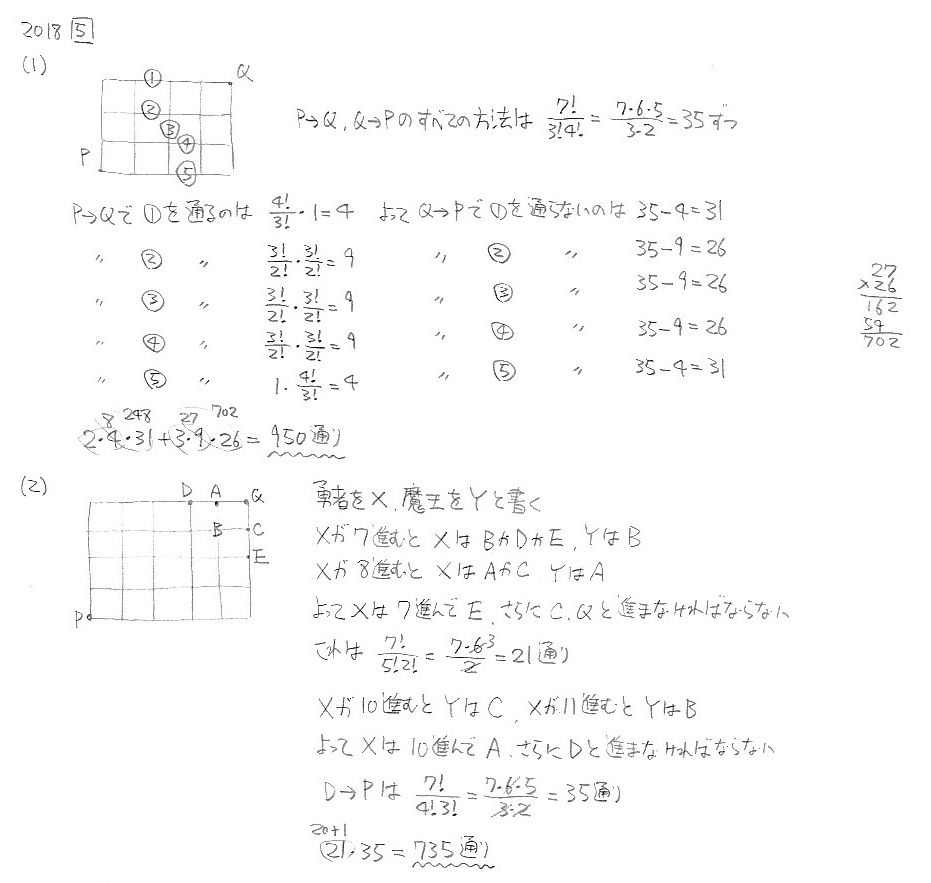 2018 5
(1)
① Q
②
③
④
P ⑤
P→Q, Q→Pのすべての方法は 7!/3!4! = 7·6·5/3·2 = 35ずつ
P→Qで①を通るのは 4!/3!·1=4 よってQ→Pで①を通らないのは 35-4=31
〃 ② 〃 3!/2!·3!/2!=9 〃 ② 〃 35-9=26
〃 ③ 〃 3!/2!·3!/2!=9 〃 ③ 〃 35-9=26
〃 ④ 〃 3!/2!·3!/2!=9 〃 ④ 〃 35-9=26
〃 ⑤ 〃 1·4!/3!=4 〃 ⑤ 〃 35-4=31
27
×26
162
54
702
8 248 27 702
2·4·31+3·9·26=950通り
(2)
D A Q
B C
E
P
勇者をX、魔王をYと書く
Xが7進むとXはBかDかE、YはB
Xが8進むとXはAかC YはA
よってXは7進んでE、さらにC、Qと進まなければならない
これは 7!/5!2! = 7·6³/2 = 21通り
Xが10進むとYはC、Xが11進むとYはB
よってXは10進んでA、さらにDと進まなければならない
D→Pは 7!/4!3! = 7·6·5/3·2 = 35通り
20+1
21·35=735通り